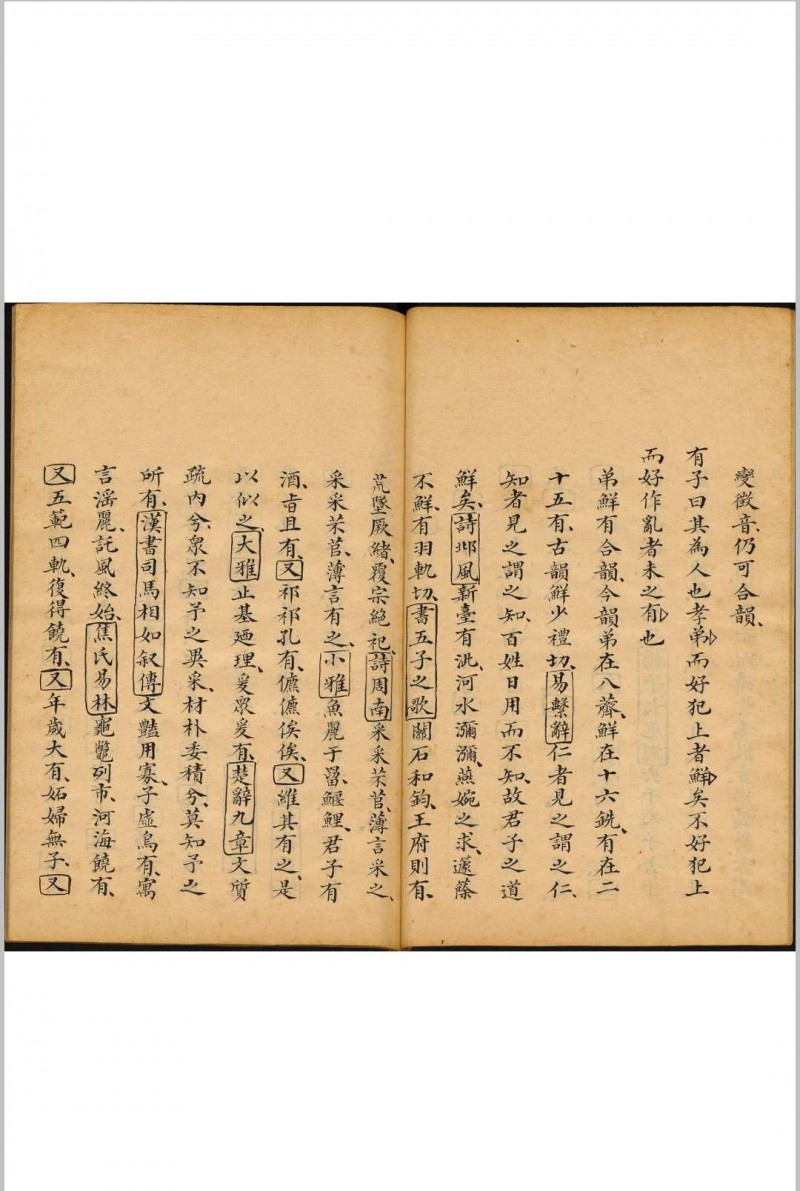 變徵音仍可合韻、
有子曰其為人也孝弟而好犯上者鮮矣不好犯上
而好作亂者未之有也
弟鮮有合韻、今韻弟在八薺、鮮在十六銑、有在二
十五有、古韻鮮少禮切、易繫辭仁者見之謂之仁、
知者見之謂之知、百姓日用而不知、故君子之道
鮮矣、詩邶風新臺有泚、河水瀰瀰、燕婉之求、籧篨
不鮮、有羽軌切、書五子之歌關石和鈞、王府則有、
荒墜厥緒、覆宗絕祀、詩周南采采芣苢、薄言采之、
采采芣苢、薄言有之、小雅魚麗于罶、鰋鯉、君子有
酒、旨且有、又祁祁孔有、儦儦俟俟、又維其有之、是
以似之、大雅止基廼理、爰眾爰有、楚辭九章文質
疏內兮、眾不知予之異采、材朴委積兮、莫知予之
所有、漢書司馬相如叙傳文豔用寡、子虛烏有、寓
言淫麗、託風終始、焦氏易林黿鼈列市、河海饒有、
又五範四軌、復得饒有、又年歲大有、妬婦無子、又